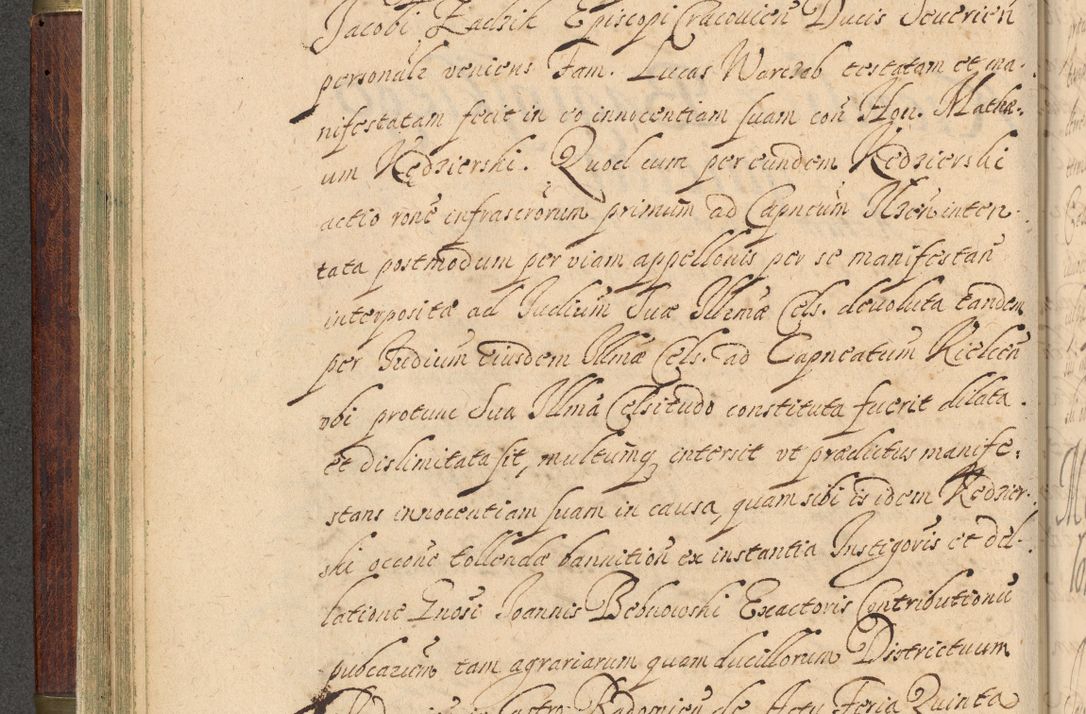 Jacobi Zadzik Episcopi Cracovień Ducis Severień
personalr veniens Fam. Lucas Warczab testatam et ma-
nifestatam fecit in vo innocentiam suam con Hon. Mathæ-
um Kędzierski. Quod cum per eundem Kędzierski
actio rone infrascrorum primum ad Capneum Ilzeń inten-
tata postmodum per viam appellonis per se manifestań
interpositæ ad Judium Suæ Illmæ Cels. devoluta tandem
per Judium eiusdem Illmæ Cels. ad Capneatum Kielceń
vbi protunc Sua Illmá Celsitudo constituta fuerit dilata
et dislimitata sit, multumq intersit vt prædictus manife-
stans innocentiam suam in causa, quam sibi is idem Kędzier-
ski occone tollendæ bannition ex instantia Instigoris et del-
latione Gnosi Joannis Bebnowski Exactoris Contributionū
pubcarum tam agrariarum quam ducillorum Districtuum
in Castro Radomień de Actu Feria Quinta